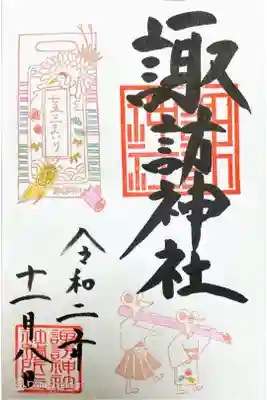 諏訪神社
令和二年
十一月八日
七五三まいり